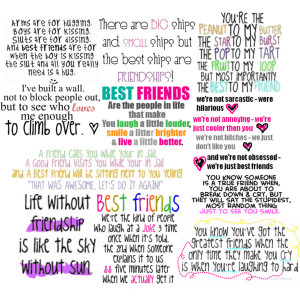 Arms are for hugging.
Boys are for kissing.
Sluts are for dissing.
And best friends are for
when the boy is kissing
the slut and all you really
need is a hug.
There are BIG ships
and small ships but
the best ships are
FRIENDSHIPS!
YOU'RE THE
PEANUT TO MY BUTTER
THE STAR TO MY BURST
THE POP TO MY TART
THE FRUIT TO MY LOOP
BUT MOST IMPORTANTLY
THE BEST TO MY FRIEND
I've built a wall,
not to block people out,
but to see who loves
me enough
to climb over.
BEST FRIENDS
Are the people in life
that make
You laugh a little louder,
smile a litter brighter
& live a little better.
we're not sarcastic - were
hilarious
we're not annoying - we're
just cooler then you
we're not bitches - we just
don't like you
and we're not obsessed -
we're just best friends
A friend calls you while your in jail
A good friend visits you while your in jail
and a Best friend will be sitting next to you yelling
"THAT WAS AWESOME, LET'S DO IT AGAIN!"
YOU KNOW SOMEONE
IS A TRUE FRIEND WHEN,
YOU ARE ABOUT TO
BREAK DOWN & CRY, BUT
THEY WILL SAY THE STUPIDEST,
MOST RANDOM THING
JUST TO SEE YOU SMILE.
Life without
friendship
is like the sky
without sun.
Best friends
we're the kind of people
who laugh at a joke 3 time
once when it's told,
the 2nd when someone
explains it to us
&& five minutes later
when we actually get it
You know you've got the
greatest friends when the
only time they make you cry
is when you're laughing to hard